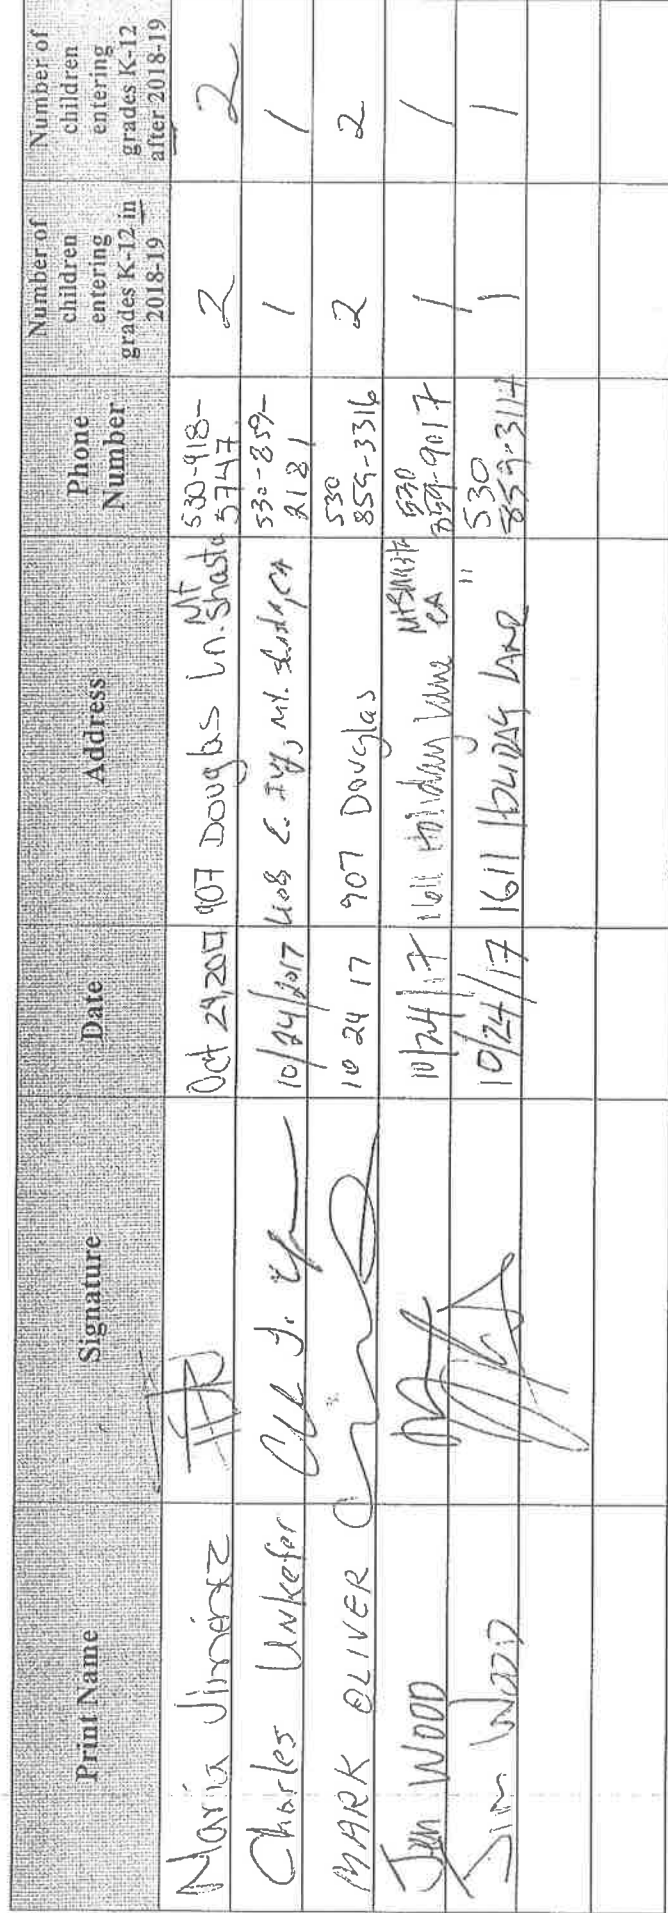 Print Name
Signature
Date
Address
Phone
Number
Number of
children
entering
grades K-12 in
2018-19
Number of
children
entering
grades K-12
after 2018-19
Maria Jimenez
Oct 24, 2017
907 Douglas Ln. Mt Shasta
530-918-
5747
2
2
Charles Unkefer
10/24/2017
E. Ivy, Mt. Shasta, CA
530-859-
2181
1
1
MARK OLIVER
10 24 17
907 Douglas
530
859-3316
2
2
Jen WOOD
10/24/17
1611 Holiday Lane Mt Shasta
CA
530
859-9017
1
1
Jim WOOD
10/24/17
1611 HOLIDAY LANE "
530
859-3117
1
1